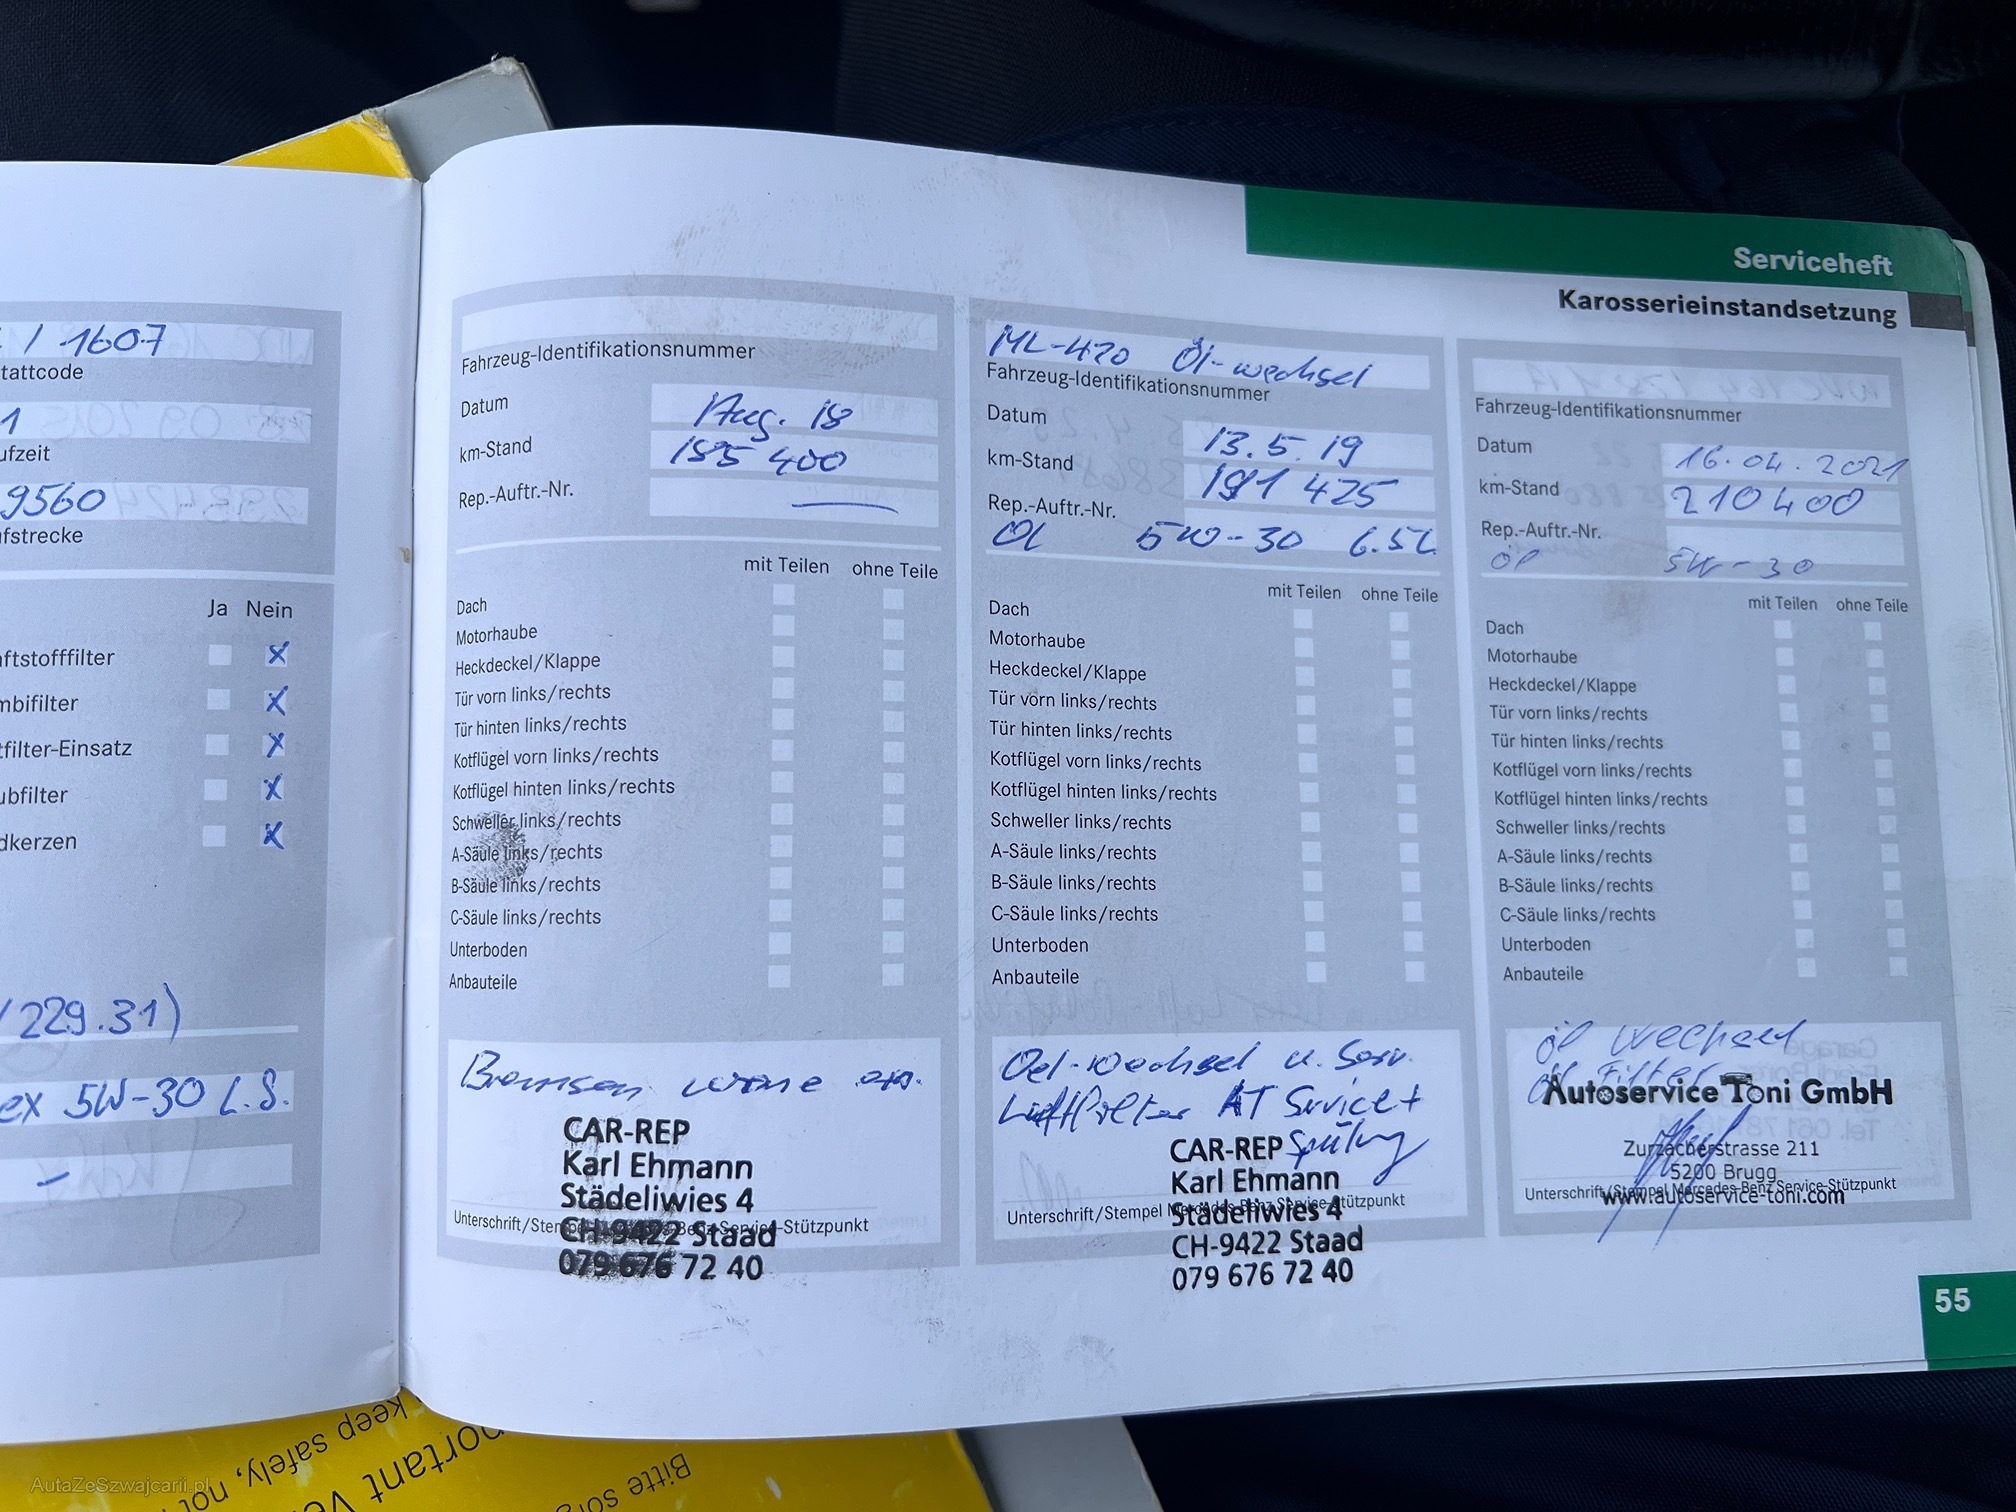 Serviceheft
Karosserieinstandsetzung
/ 1607
tattcode
1
ufzeit
9560
fstrecke
Ja Nein
ftstofffilter
mbifilter
tfilter-Einsatz
ubfilter
dkerzen
/229.31)
ex 5W-30 L.S.
Fahrzeug-Identifikationsnummer
Datum Aug. 18
km-Stand 185 400
Rep.-Auftr.-Nr.
mit Teilen ohne Teile
Dach
Motorhaube
Heckdeckel/Klappe
Tür vorn links/rechts
Tür hinten links/rechts
Kotflügel vorn links/rechts
Kotflügel hinten links/rechts
Schweller links/rechts
A-Säule links/rechts
B-Säule links/rechts
C-Säule links/rechts
Unterboden
Anbauteile
Bremsen vorne
CAR-REP
Karl Ehmann
Städeliwies 4
Unterschrift/Stempel Benz Service-Stützpunkt
CH-9422 Staad
079 676 72 40
ML-420 Öl-wechsel
Fahrzeug-Identifikationsnummer
Datum 13.5.19
km-Stand 191 425
Rep.-Auftr.-Nr.
Öl 5W-30 6.5L
mit Teilen ohne Teile
Dach
Motorhaube
Heckdeckel/Klappe
Tür vorn links/rechts
Tür hinten links/rechts
Kotflügel vorn links/rechts
Kotflügel hinten links/rechts
Schweller links/rechts
A-Säule links/rechts
B-Säule links/rechts
C-Säule links/rechts
Unterboden
Anbauteile
Oel-wechsel u. Serv.
Luftfilter AT Service +
Spülung
CAR-REP
Karl Ehmann
Unterschrift/Stempel Mercedes-Benz Service-Stützpunkt
Städeliwies 4
CH-9422 Staad
079 676 72 40
Fahrzeug-Identifikationsnummer
Datum 16.04.2021
km-Stand 210400
Rep.-Auftr.-Nr.
öl 5W-30
mit Teilen ohne Teile
Dach
Motorhaube
Heckdeckel/Klappe
Tür vorn links/rechts
Tür hinten links/rechts
Kotflügel vorn links/rechts
Kotflügel hinten links/rechts
Schweller links/rechts
A-Säule links/rechts
B-Säule links/rechts
C-Säule links/rechts
Unterboden
Anbauteile
öl wechsel
öl Filter
Autoservice Toni GmbH
Zurzacherstrasse 211
5200 Brugg
Unterschrift/Stempel Mercedes-Benz Service-Stützpunkt
www.autoservice-toni.com
55
keep safely, not
portant
Bitte
AutaZeSzwajcarii.pl